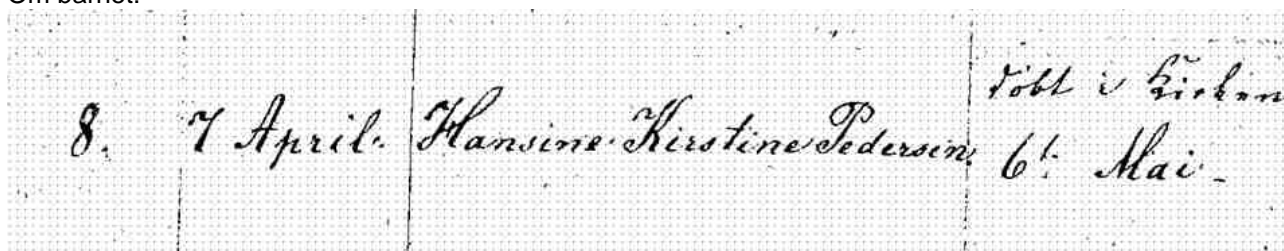 Om barnet:
8. 7 April. Hansine Kirstine Pedersen.
døbt i Kirken
6t. Mai.